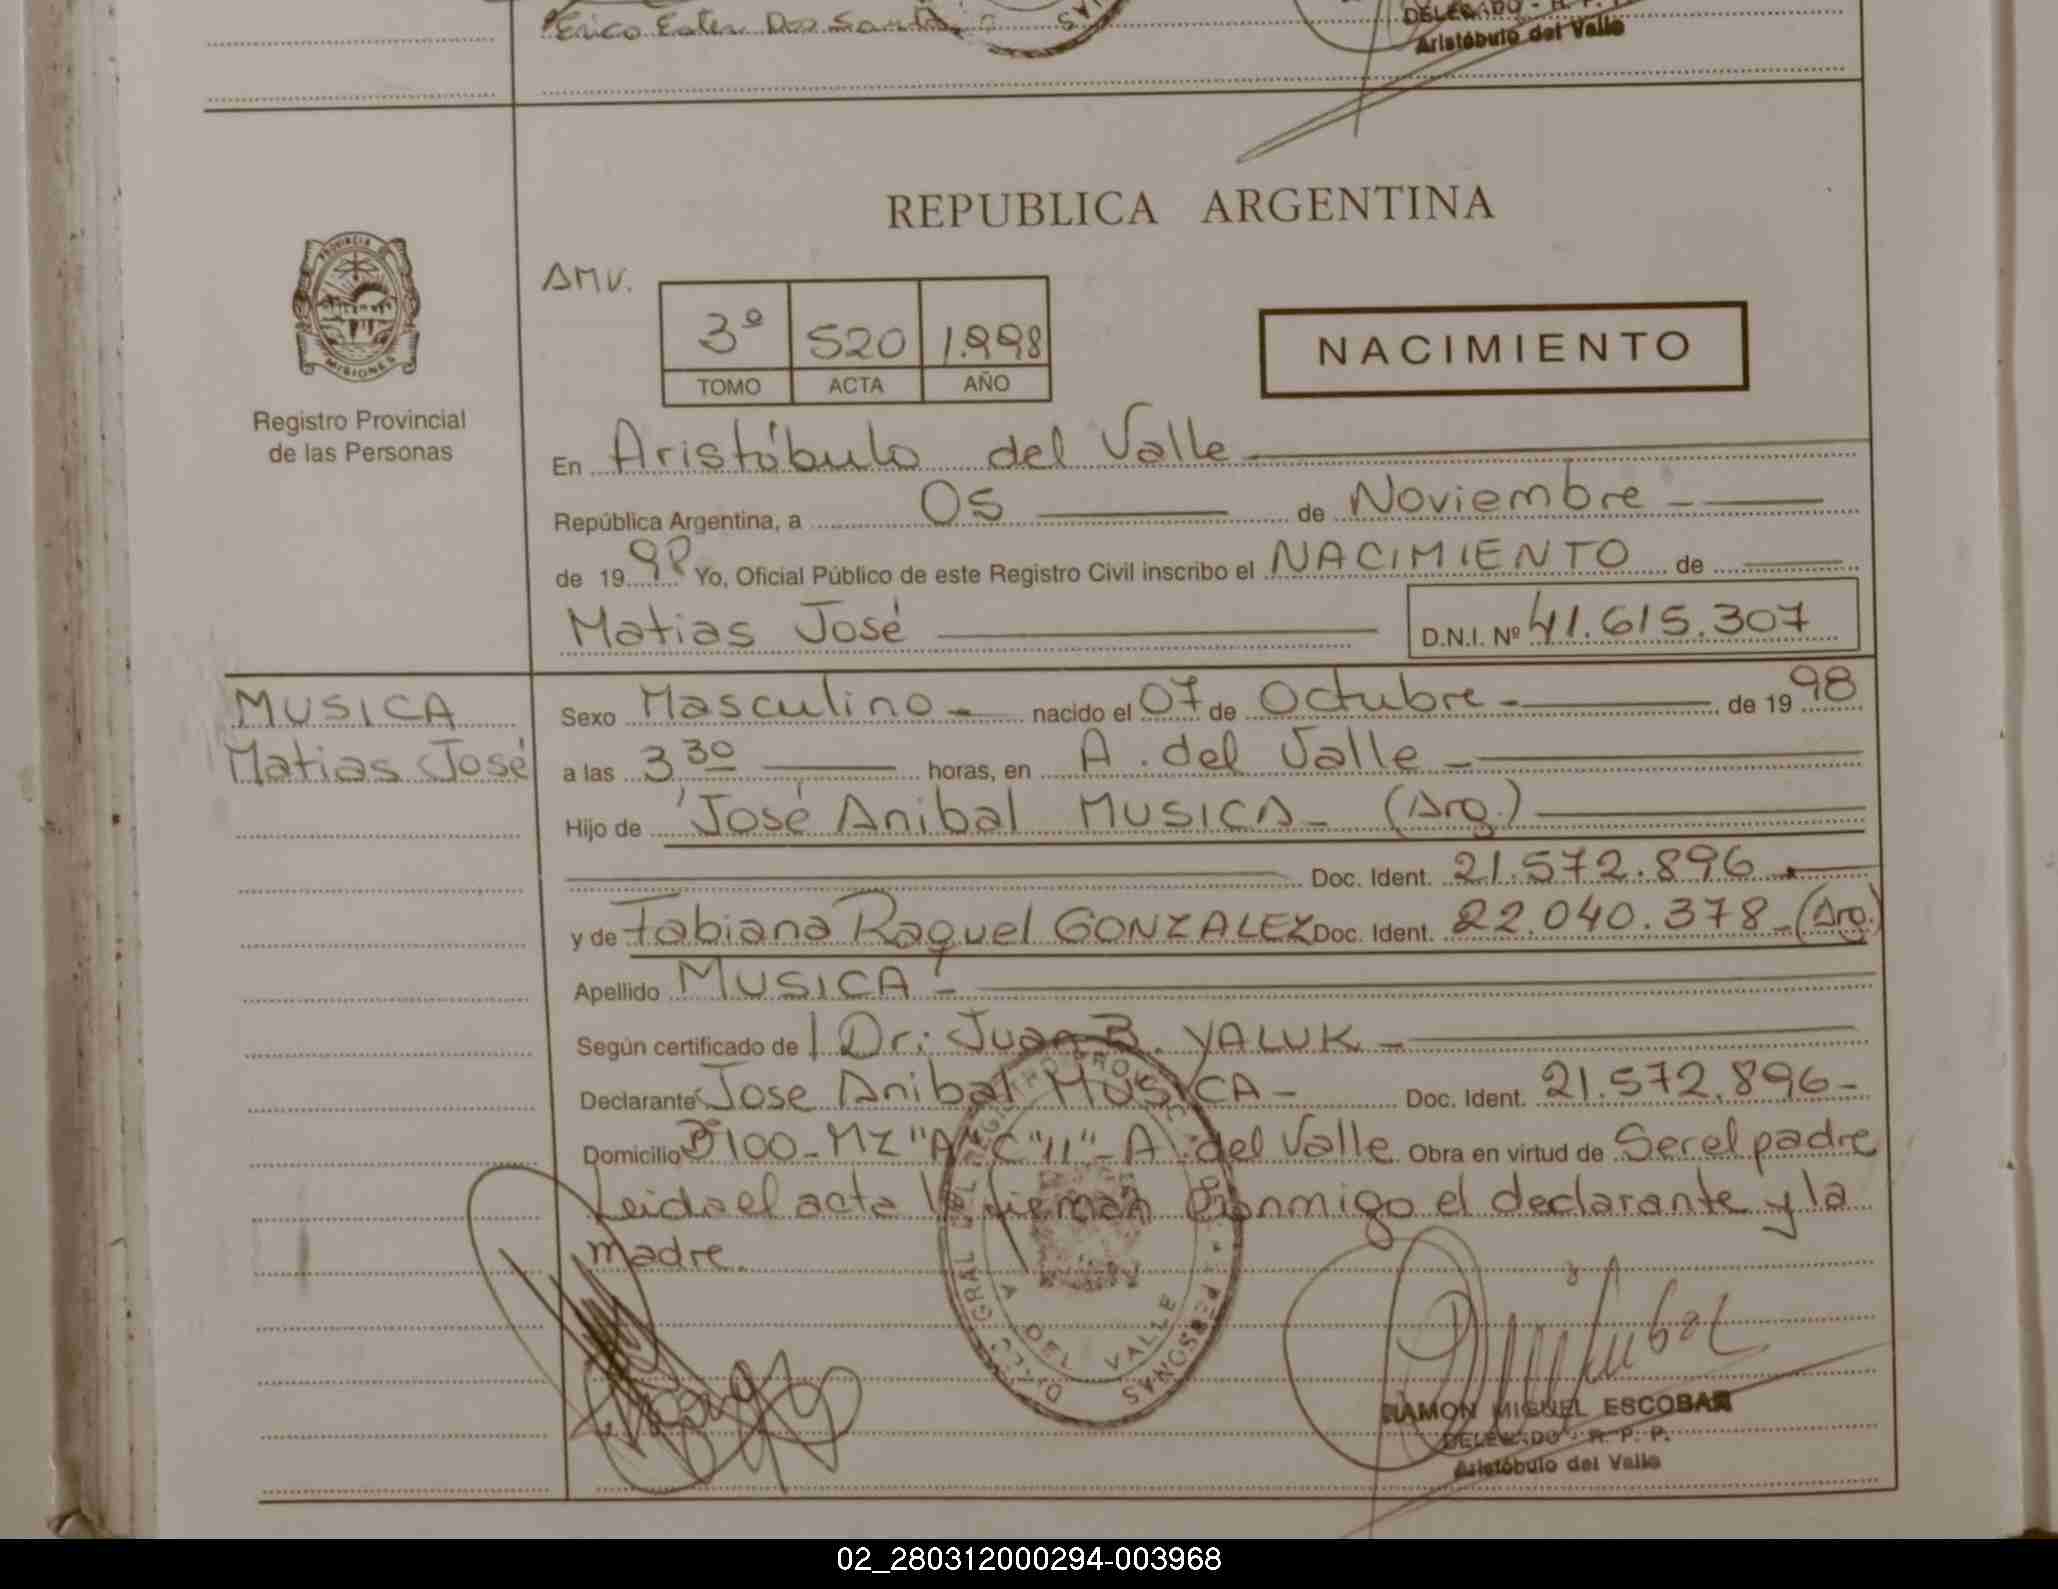 Erico Ester Dos Santos
DELEGADO - R. P. P.
Aristóbulo del Valle
REPUBLICA ARGENTINA
PROVINCIA DE MISIONES
Registro Provincial
de las Personas
AMV.
3º 520 1.998
TOMO ACTA AÑO
NACIMIENTO
En Aristóbulo del Valle
República Argentina, a 05 de Noviembre
de 1998 Yo, Oficial Público de este Registro Civil inscribo el NACIMIENTO de
Matias José D.N.I. Nº 41.615.307
MUSICA
Matias José
Sexo Masculino nacido el 07 de Octubre de 1998
a las 3,30 horas, en A. del Valle
Hijo de José Anibal MUSICA (Arg.)
Doc. Ident. 21.572.896
y de Fabiana Raquel GONZALEZ Doc. Ident. 22.040.378 (Arg.)
Apellido MUSICA
Según certificado de Dr: Juan B. YALUK
Declarante Jose Anibal MUSICA Doc. Ident. 21.572.896
Domicilio Bº 100 - MZ "A" C "11" - A. del Valle Obra en virtud de Ser el padre
Leida el acta la firman conmigo el declarante y la
madre.
DEL VALLE
PERSONAS
RAMON MIGUEL ESCOBAR
DELEGADO - R. P. P.
Aristóbulo del Valle
02_280312000294-003968